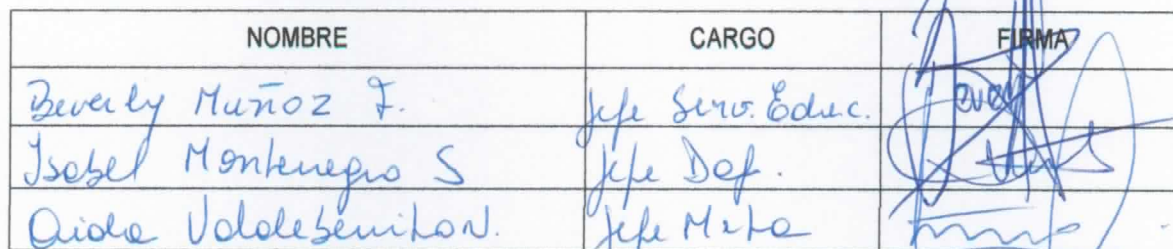 NOMBRE CARGO FIRMA
Beverly Muñoz F. Jefe Serv. Educ.
Isabel Montenegro S Jefe Daf.
Aida Valdebenito N. Jefe